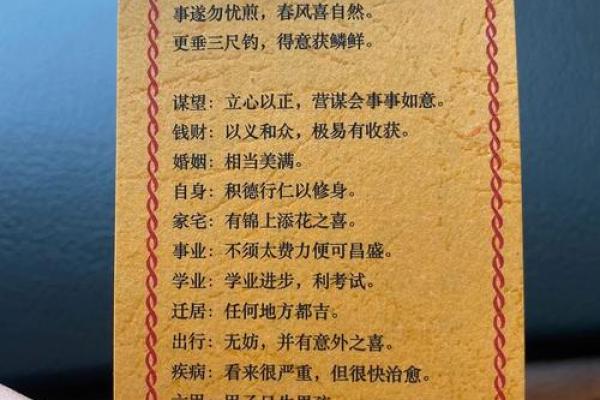 事遂勿忧煎，春风喜自然。
更垂三尺钓，得意获鳞鲜。
谋望：立心以正，营谋会事事如意。
钱财：以义和众，极易有收获。
婚姻：相当美满。
自身：积德行仁以修身。
家宅：有锦上添花之喜。
事业：不须太费力便可昌盛。
学业：学业进步，利考试。
迁居：任何地方都吉。
出行：无妨，并有意外之喜。
疾病：看来很严重，但很快治愈。